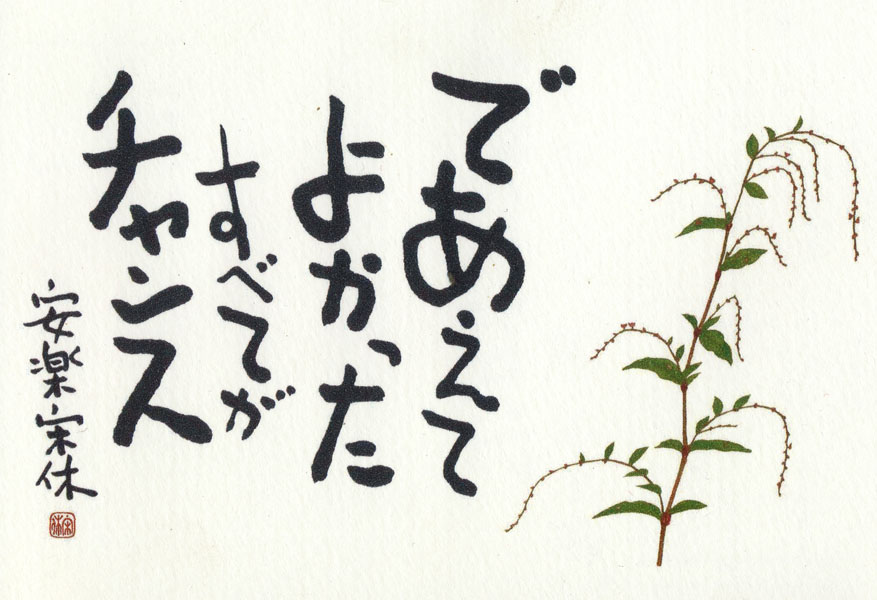 であえて
よかった
すべてが
チャンス
安楽宋休